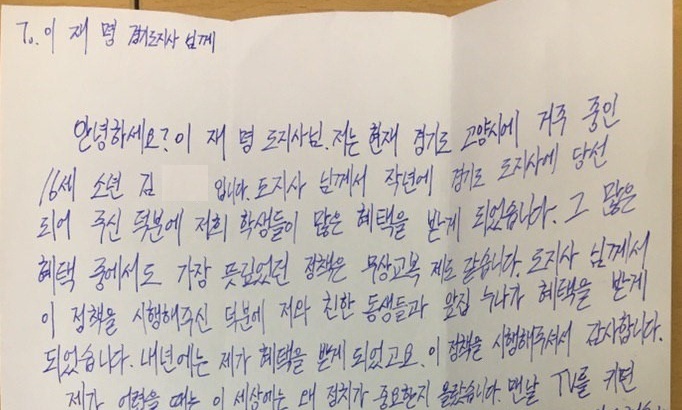 To. 이 재 명 경기도지사 님께
안녕하세요? 이 재 명 도지사님. 저는 현재 경기도 고양시에 거주 중인
16세 소년 김 입니다. 도지사 님께서 작년에 경기도 도지사에 당선
되어 주신 덕분에 저희 학생들이 많은 혜택을 받게 되었습니다. 그 많은
혜택 중에서도 가장 뜻깊었던 정책은 무상교복 제도 같습니다. 도지사 님께서
이 정책을 시행해주신 덕분에 저와 친한 동생들과 앞집 누나가 혜택을 받게
되었습니다. 내년에는 제가 혜택을 받게 되었고요. 이 정책을 시행해주셔서 감사합니다.
제가 어렸을 때는 이 세상에는 왜 정치가 중요한지 몰랐습니다. 맨날 TV를 키면